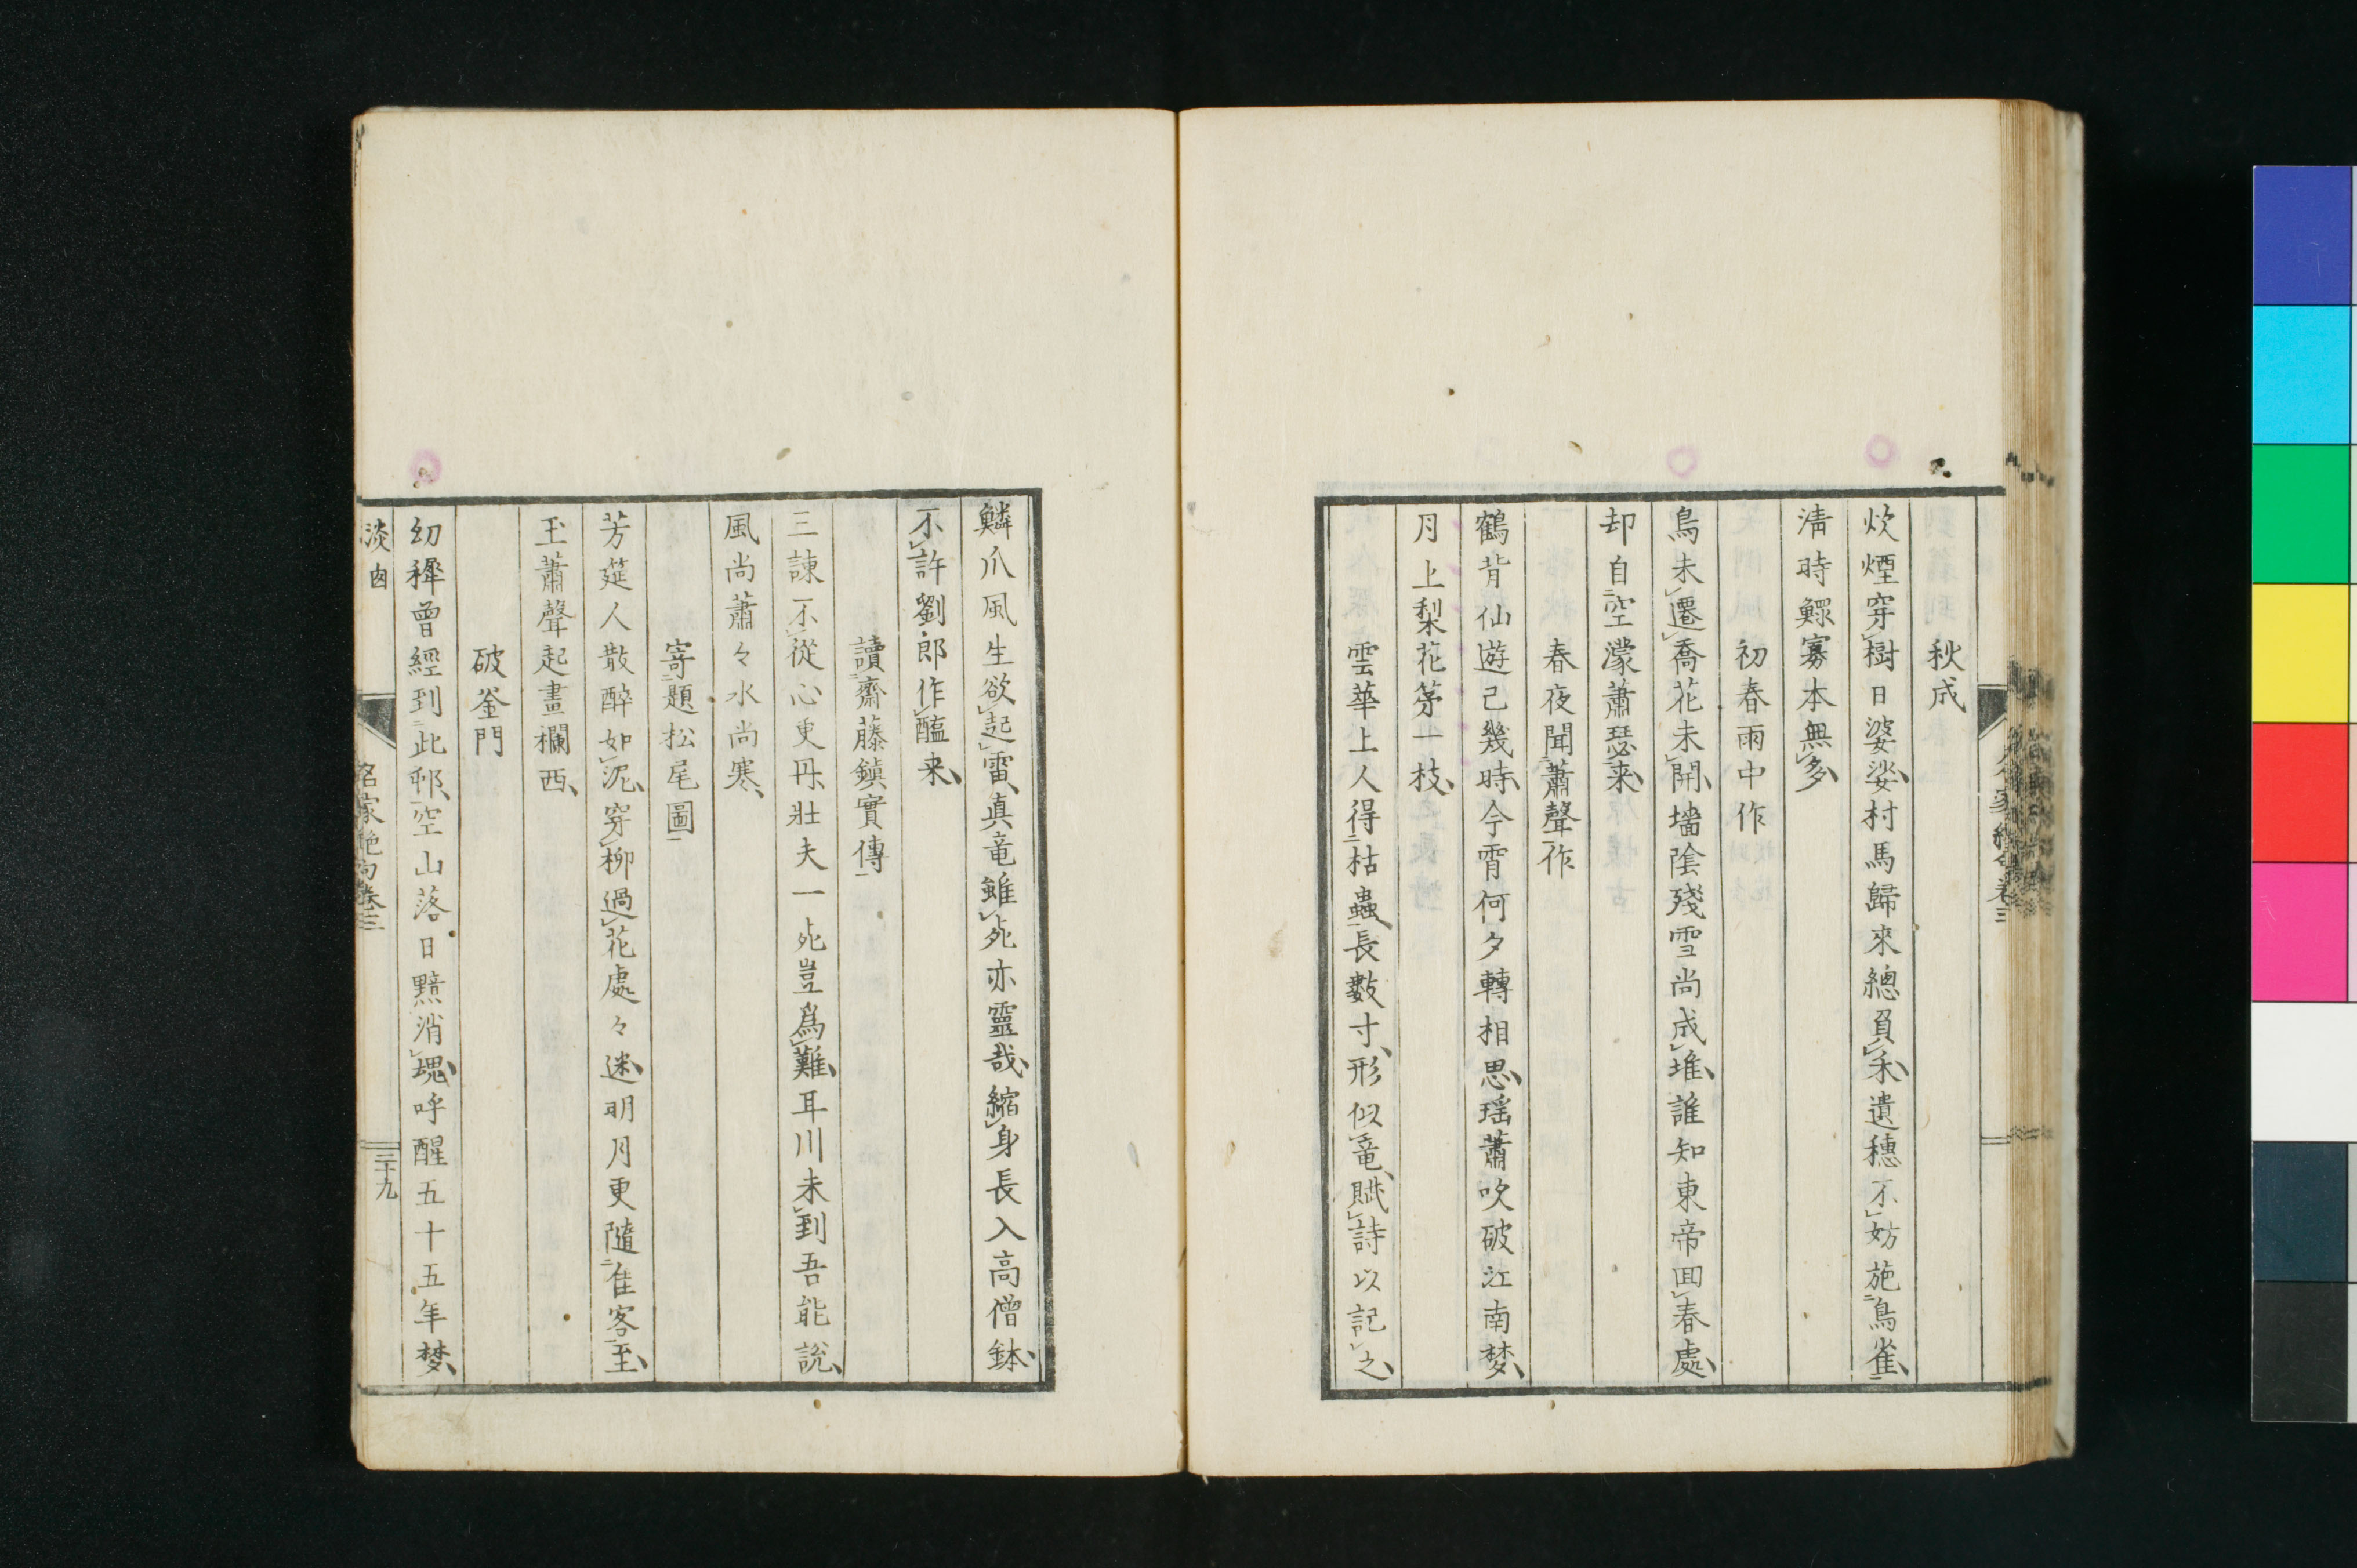 秋成
炊煙穿樹日婆娑村馬歸來總負禾遺穗不妨施鳥雀
清時鰥寡本無多
初春雨中作
鳥未遷喬花未開墻陰殘雪尚成堆誰知東帝囬春處
却自空濛蕭瑟来
春夜聞蕭聲作
鶴背仙遊已幾時今霄何夕轉相思瑶蕭吹破江南夢
月上梨花茅一枝
雲華上人得枯蟲長數寸形似竜賦詩以記之
鱗爪風生欲起雷真竜雖死亦靈哉縮身長入高僧鉢
不許劉郎作醢来
讀齋藤鎮實傳
三諫不從心更丹壯夫一死豈爲難耳川未到吾能説
風尚蕭々水尚寒
寄題松尾圖
芳筵人散醉如泥穿柳過花處々迷明月更隨佳客至
玉蕭聲起畫欄西
破釜門
幼穉曾經到此邨空山落日黯消魂呼醒五十五年夢
名家絶句卷三
三十九